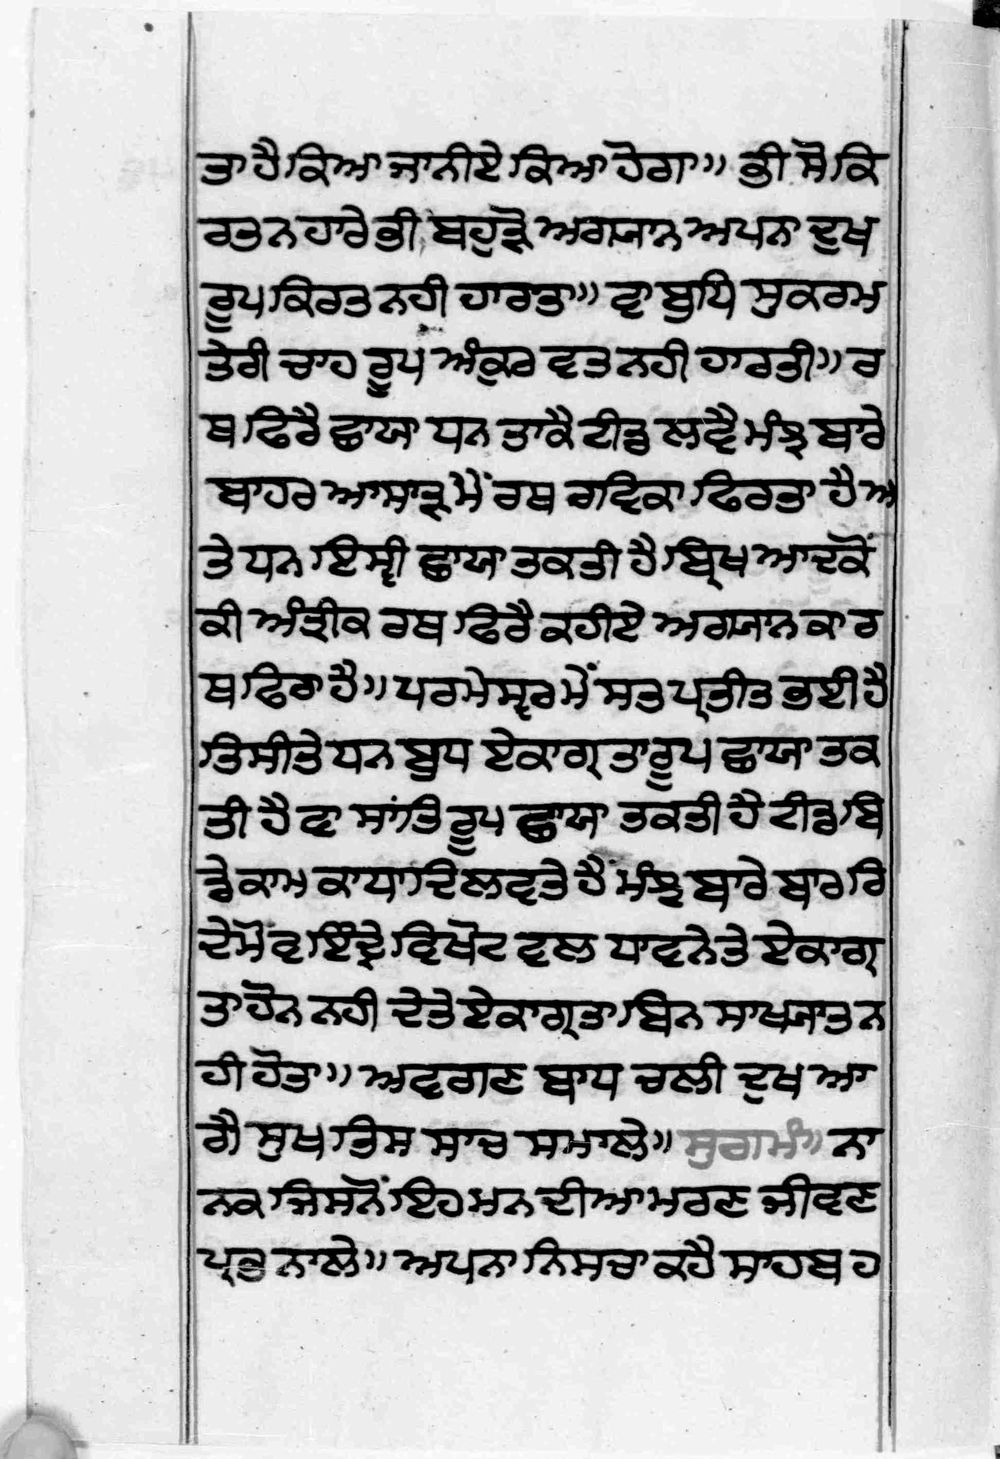 ਤਾ ਹੈ ਕਿਆ ਜਾਨੀਏ ਕਿਆ ਹੋਗਾ॥ ਭੀ ਸੋ ਕਿ
ਰਤ ਨ ਹਾਰੇ ਭੀ ਬਹੁੜੋ ਅਗਯਾਨ ਅਪਨਾ ਦੁਖ
ਰੂਪ ਕਿਰਤ ਨਹੀ ਹਾਰਤਾ॥ ਵਾ ਬੁਧਿ ਸੁਕਰਮ
ਤੇਰੀ ਚਾਹ ਰੂਪ ਅੰਕੁਰ ਵਤ ਨਹੀ ਹਾਰਤੀ॥ ਰ
ਥ ਫਿਰੈ ਛਾਯਾ ਧਨ ਤਾਕੈ ਟੀਡੁ ਲਵੈ ਮੰਝ ਬਾਰੇ
ਬਾਹਰ ਆਸਾੜ ਮੈਂ ਰਥ ਰਵਿਕਾ ਫਿਰਤਾ ਹੈ ਅ
ਤੇ ਧਨ ਇਸ੍ਰੀ ਛਾਯਾ ਤਕਤੀ ਹੈ ਬ੍ਰਿਖ ਆਦਕੋਂ
ਕੀ ਅੰਤ੍ਰੀਕ ਰਥ ਫਿਰੈ ਕਹੀਏ ਅਗਯਾਨ ਕਾ ਰ
ਥ ਫਿਰਾ ਹੈ॥ ਪਰਮੇਸ੍ਵਰ ਮੇਂ ਸਤ ਪ੍ਰਤੀਤ ਭਈ ਹੈ
ਤਿਸੀਤੇ ਧਨ ਬੁਧ ਏਕਾਗ੍ਰਤਾ ਰੂਪ ਛਾਯਾ ਤਕ
ਤੀ ਹੈ ਵਾ ਸਾਂਤਿ ਰੂਪ ਛਾਯਾ ਤਕਤੀ ਹੈ ਟੀਡੁ ਬਿ
ਕਾਮ ਕਾਧਾਦਿ ਲਵਤੇ ਹੈਂ ਮੰਝ ਬਾਰੇ ਬਾਰ ਰਿ
ਦੇਮੋ ਵ ਇੰਦ੍ਰੇ ਵਿਖੋਟ ਵਲ ਧਾਵਨੇ ਤੇ ਏਕਾਗ੍ਰ
ਤਾ ਹੋਨ ਨਹੀ ਦੇਤੇ ਏਕਾਗ੍ਰਤਾ ਬਿਨ ਸਾਖਯਾਤ ਨ
ਹੀ ਹੋਤਾ॥ ਅਵਗਣ ਬਾਧ ਚਲੀ ਦੁਖ ਆ
ਗੈ ਸੁਖ ਤਿਸ ਸਾਚ ਸਮਾਲੇ॥ ਸੁਗਮੰ॥ ਨਾ
ਨਕ ਜਿਸਨੋਂ ਇਹ ਮਨ ਦੀਆ ਮਰਣ ਜੀਵਣ
ਪ੍ਰਭ ਨਾਲੇ॥ ਅਪਨਾ ਨਿਸਚਾ ਕਹੈ ਸਾਹਬ ਹ